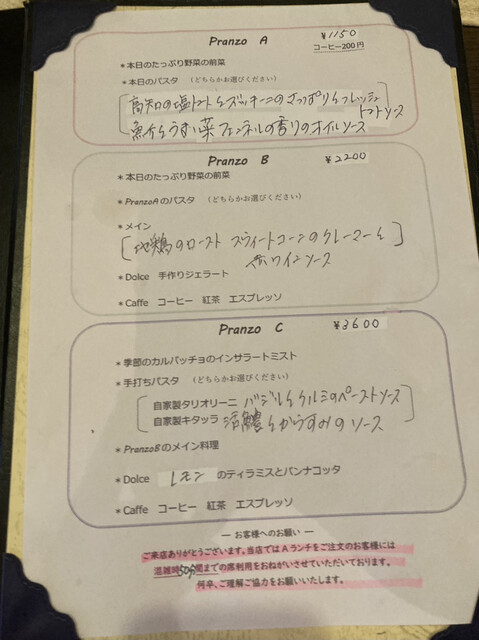 Pranzo A ¥1150
コーヒー200円
*本日のたっぷり野菜の前菜
*本日のパスタ (どちらかお選びください)
高知の塩トマトとズッキーニのさっぱりとフレッシュ
トマトソース
魚介とうすい菜 フェンネルの香りのオイルソース
Pranzo B ¥2200
*本日のたっぷり野菜の前菜
*PranzoAのパスタ (どちらかお選びください)
*メイン
地鶏のロースト スウィートコーンのクレマーと
赤ワインソース
*Dolce 手作りジェラート
*Caffe コーヒー 紅茶 エスプレッソ
Pranzo C ¥3600
*季節のカルパッチョのインサラートミスト
*手打ちパスタ (どちらかお選びください)
自家製タリオリーニ バジルとクルミのペーストソース
自家製キタッラ 活鱧とからすみのソース
*PranzoBのメイン料理
*Dolce レモン のティラミスとパンナコッタ
*Caffe コーヒー 紅茶 エスプレッソ
― お客様へのお願い ―
ご来店ありがとうございます。当店ではAランチをご注文のお客様には
混雑時50分間までの席利用をおねがいさせていただいております。
何卒、ご理解ご協力をお願いいたします。